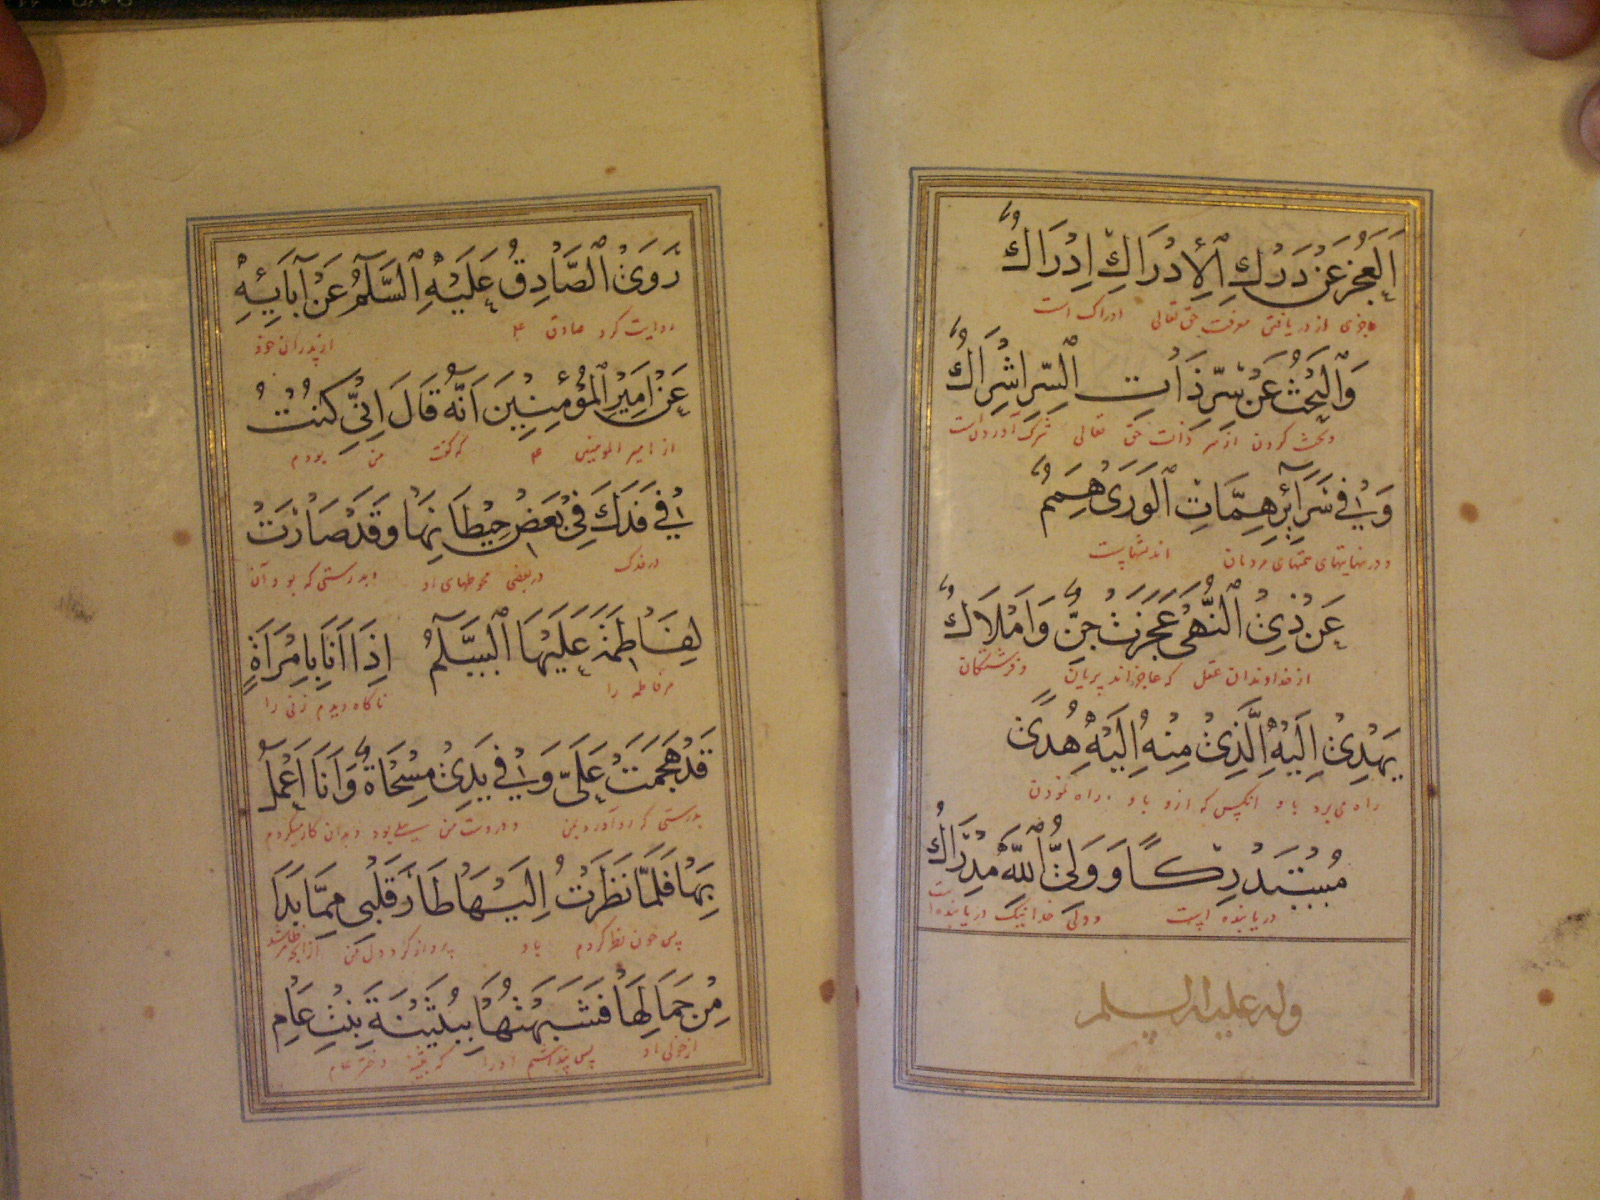 اَلْعَجْزُ عَنْ دَرْكِ الْاِدْرَاكِ اِدْرَاكٌ
عاجزی از دریافتن معرفت حق تعالی ادراک است
وَالْبَحْثُ عَنْ سِرِّ ذَاتِ السِّرِّ اِشْرَاكٌ
و بحث کردن از سر ذات حق تعالی شرک آوردن است
وَفِيْ سَرَآئِرِ هِمَّاتِ الْوَرَىٰ هِمَمٌ
و در نهایتهای همتهای مردمان اندیشهاست
عَنْ ذِيْ النُّهٰى عَجَزَتْ جِنٌّ وَاَمْلَاكٌ
از خداوندان عقل که عاجزاند پریان و فرشتگان
يَهْدِيْ اِلَيْهِ الَّذِيْ مِنْهُ اِلَيْهِ هُدًى
راه می برد باو انکس که ازو باو راه نمودن
مُسْتَدْرِكًا وَوَلِيُّ اللّٰهِ مِدْرَاكٌ
دریابنده است و ولی خدا نیک دریابنده است
وله علیه السلم
رَوَىٰ الصَّادِقُ عَلَيْهِ السَّلَامُ عَنْ آبَائِهِ
روایت کرد صادق ع از پدران خود
عَنْ اَمِيْرِ الْمُؤْمِنِيْنَ اَنَّهُ قَالَ اِنِّيْ كُنْتُ
از امیر المومنین ع که گفت من بودم
فِيْ فَدَكَ فِيْ بَعْضِ حِيْطَانِهَا وَقَدْ صَارَتْ
در فدک در بعضی محوطهای او و بدرستی که بود آن
لِفَاطِمَةَ عَلَيْهَا السَّلَامُ اِذَا اَنَا بِامْرَاَةٍ
مر فاطمه را ناکاه دیدم زنی را
قَدْ هَجَمَتْ عَلَيَّ وَفِيْ يَدِيْ مِسْحَاةٌ وَاَنَا اَعْمَلُ
بدرستی که درآورد بمن و در دست من بیلی بود و بدان کار میکردم
بِهَا فَلَمَّا نَظَرْتُ اِلَيْهَا طَارَ قَلْبِيْ مِمَّا بَدَا
پس چون نظر کردم باو پرواز کرد دل من از انچه ظاهر شد
مِنْ جَمَالِهَا فَشَبَّهْتُهَا بِبُثَيْنَةَ بِنْتِ عَامِرٍ
از خوبی او پس پنداشتم او را که بثینه دختر عام